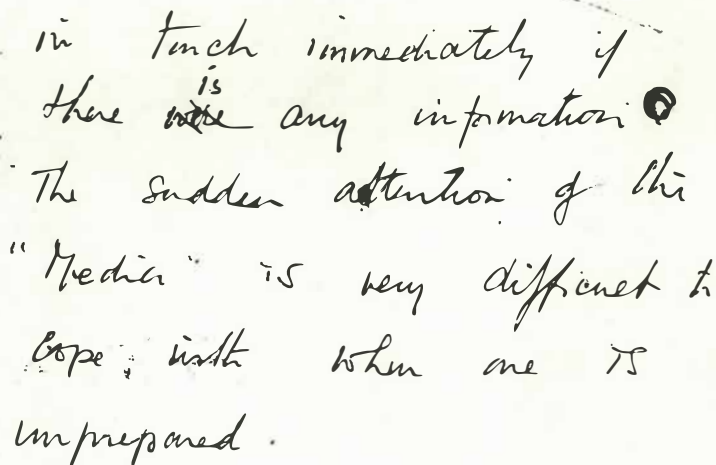 in touch immediately if
there is any information.
The sudden attention of the
"Media" is very difficult to
cope with when one is
unprepared.